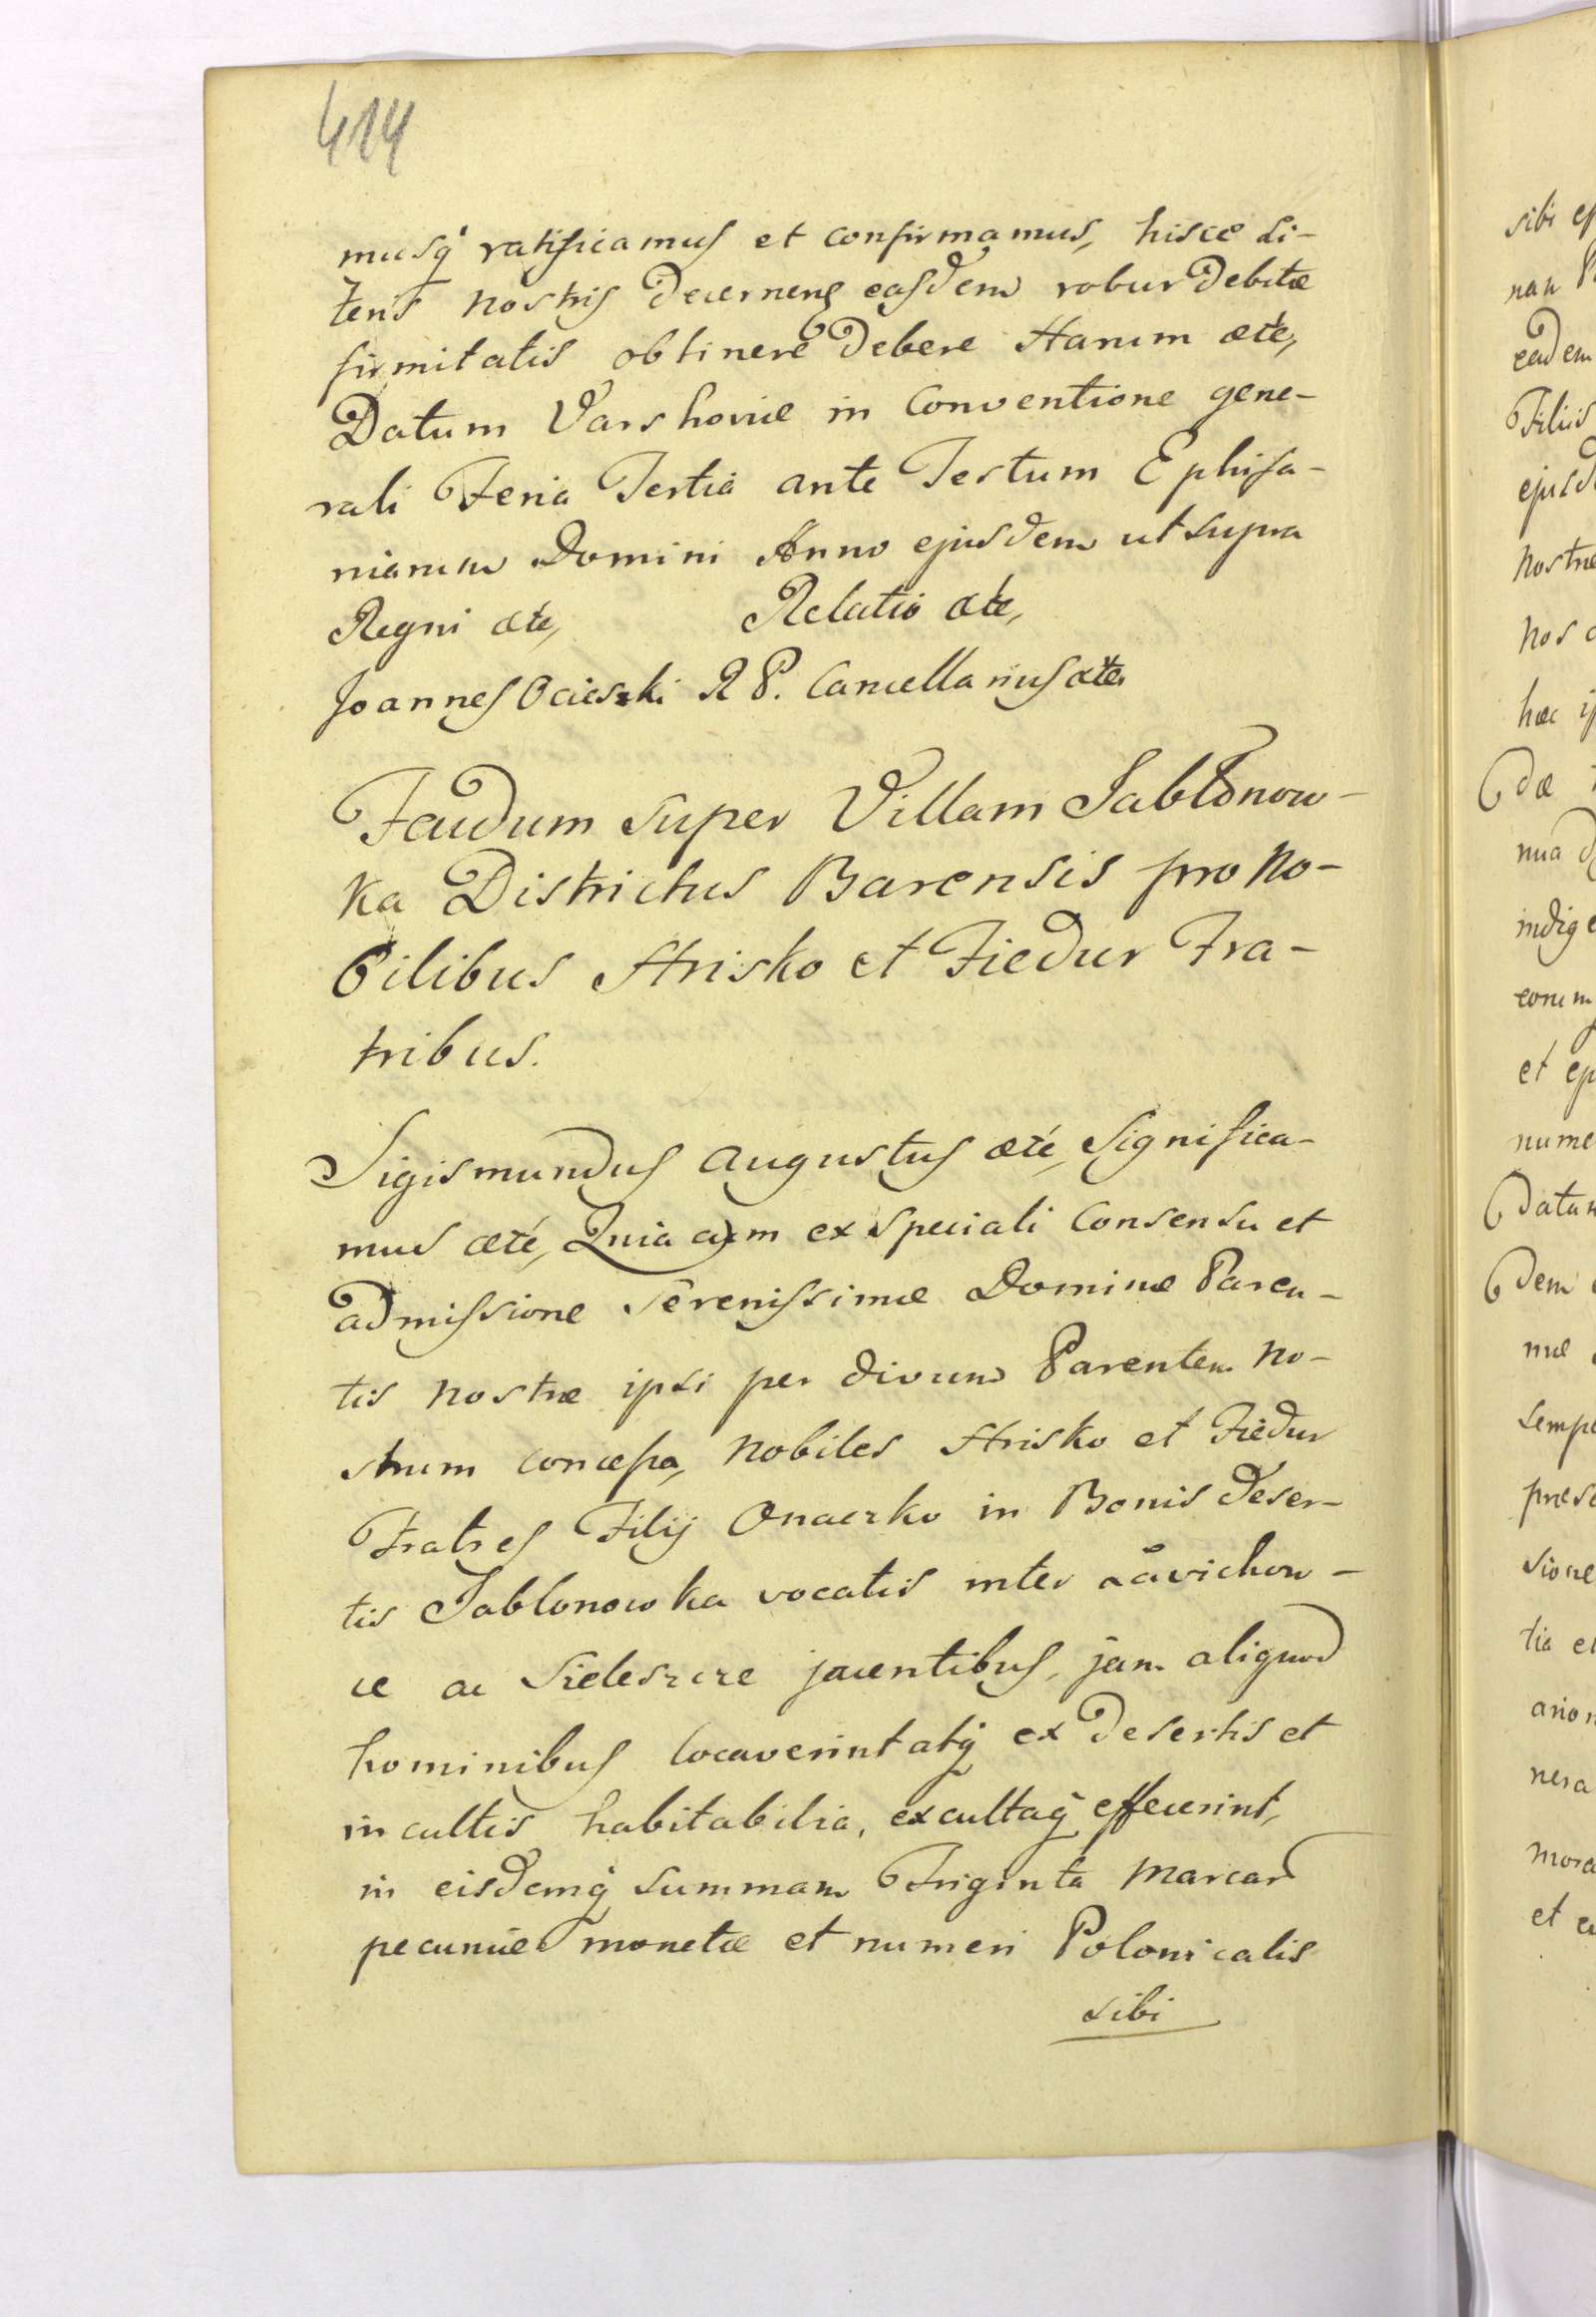 414
musq ratificamus et confirmamus, hisce Li-
teris nostris decernens easdem robur debitæ
firmitatis obtinere debere Harum ætc,
Datum Varshoviæ in Conventione gene-
rali Feria Tertia ante Festum Ephifa-
niarum Domini Anno ejusdem ut supra
Regni ætc, Relatio ætc,
Joannes Ocieszki R P. Cancellarius ætc
Faudum super Villam Jabłonow-
ka Districtus Barensis pro No-
bilibus Hrisko et Fiedur Fra-
tribus.
Sigismundus Augustus ætc, Significa-
mus ætc, Quia cum ex speciali Consensu et
admissione Serenissimæ Dominæ Paren-
tis nostræ ipsi per divum Parentem no-
strum concessa, Nobiles Hrisko et Fiedur
Fratres Filij Onaczko in Bonis deser-
tis Jablonowka vocatis inter Lavichow-
ce ac Sieleszcze jacentibus, jam aliquod
hominibus locaverint atq ex desertis et
incultis habitabilia, excultaq effecerint,
in eisdemq summam Triginta Marcar
pecuniæ monetæ et numeri Polonicalis
sibi
sibi
nan
eadem
Filiis
ejusd
nostræ
nos
hæc
dæ
nua
indige
eorum
et
nume
datum
dem
nuæ
sempe
præse
sione
tia
ario
nera
mora
et